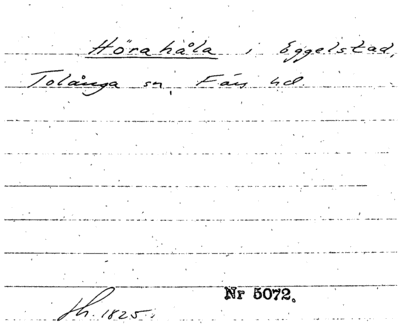 Hörahåla i Äggelstad,
Tolånga sn, Färs hd.
Nr 5072.
1825.